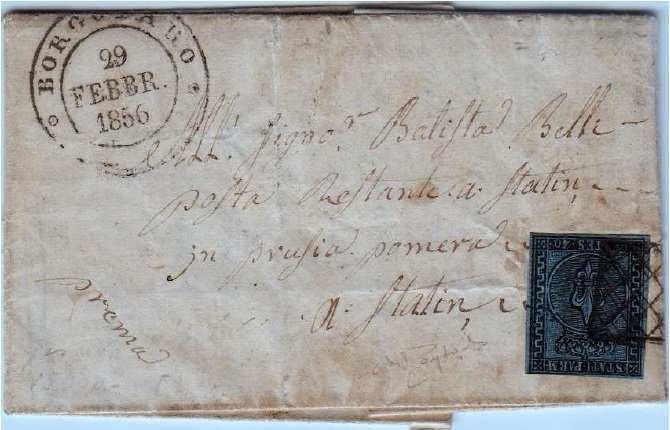 BORGOTARO
29
FEBBR.
1856
All' Signo.r Batista Belli
posta Restante a Statin
in prusia pomera
a Statin
prema
STATI PARM.